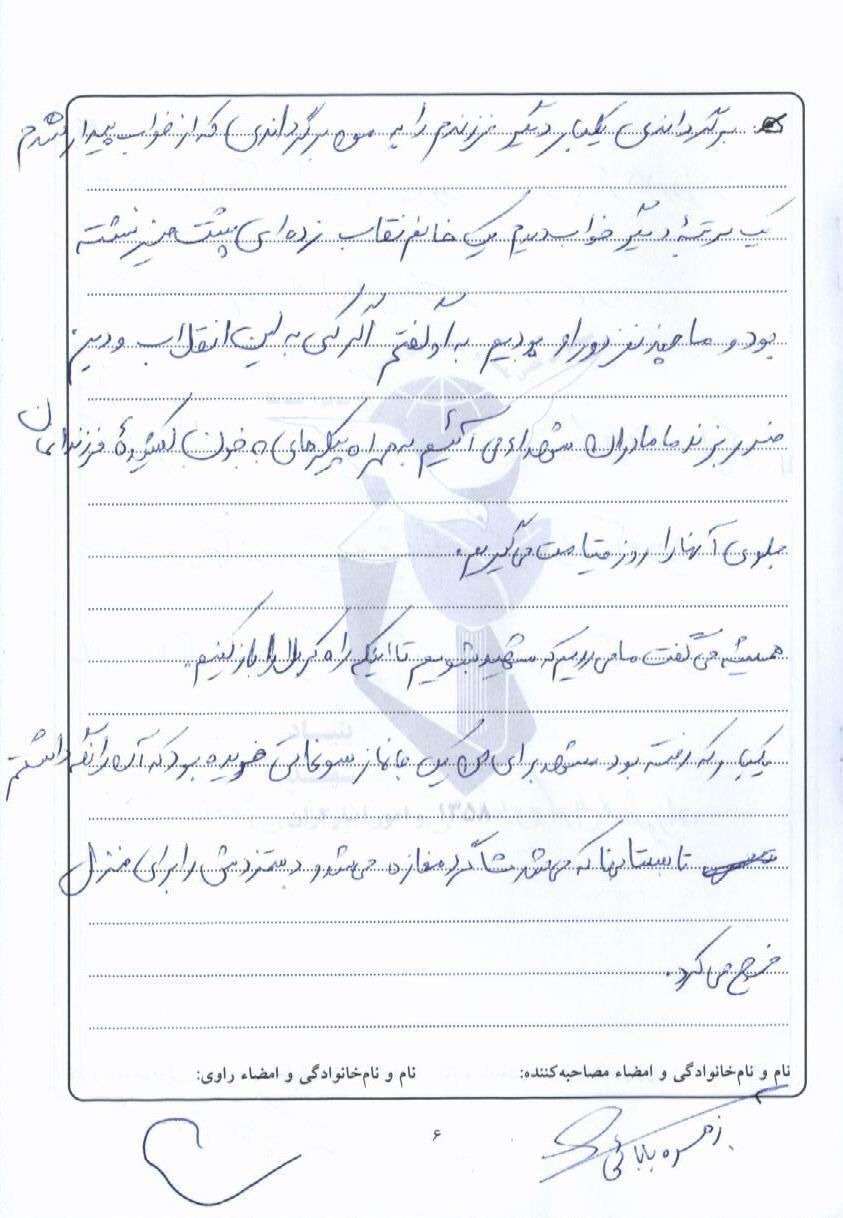 برگرداندی یکبار دیگر فرزندم را به من برگرداندی که از خواب بیدار شدم
یک مرتبهٔ دیگر خواب دیدم یک خانم نقاب زده‌ای پشت میز نشسته
بود و ما چند نفر دور او بودیم به او گفتم اگر کسی به این انقلاب و دین
ضرر بزند ما مادران شهداء می آئیم به همراه پیکرهای به خون کشیدهٔ فرزندانمان
جلوی آنها را روز قیامت می گیریم.
همیشه می گفت ما می رویم که شهید بشویم تا اینکه راه کربلا را باز کنیم.
یکبار که رفته بود مشهد برای من یک جانماز سوغاتی خریده بود که آن را نگه داشتم
تابستانها که می شد شاگرد مغازه می شد و دستمزدش را برای منزل
خرج می کرد.
نام و نام‌خانوادگی و امضاء مصاحبه‌کننده: نام و نام‌خانوادگی و امضاء راوی:
زهره بابائی
۶